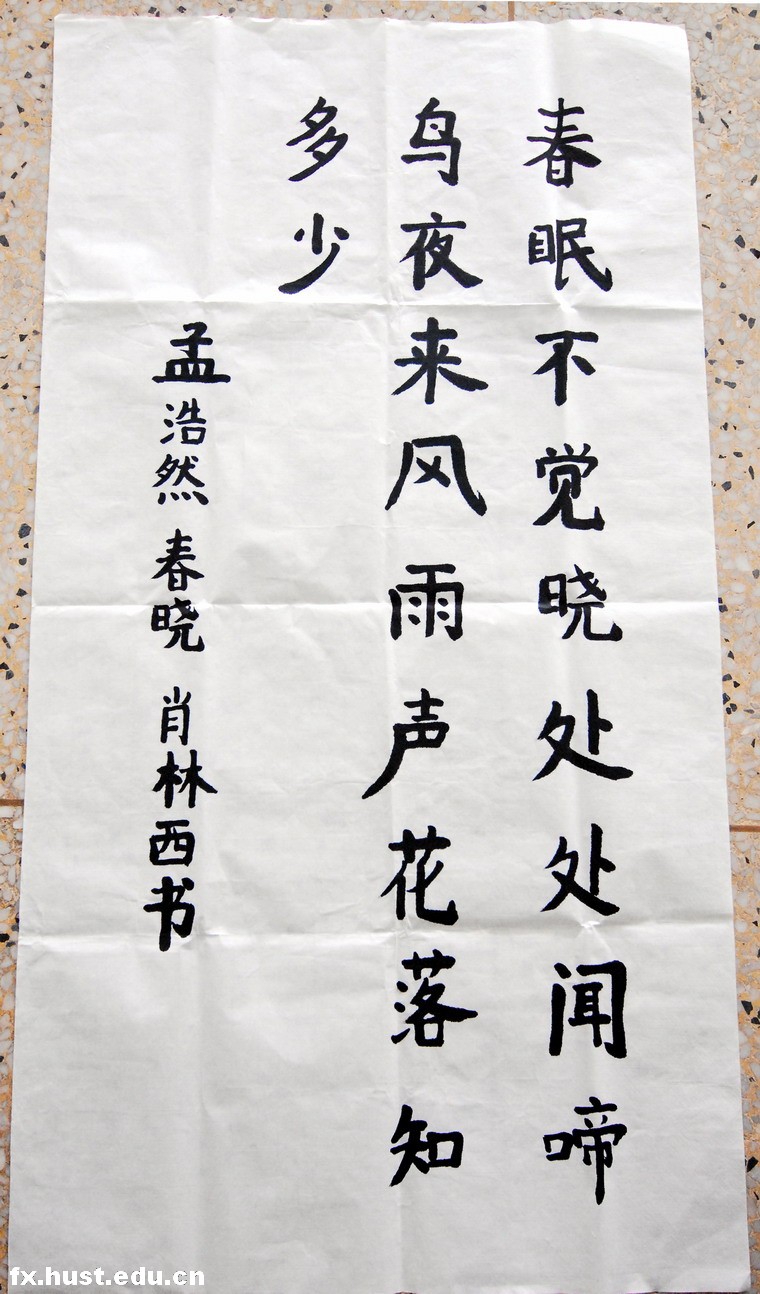 春眠不觉晓处处闻啼
鸟夜来风雨声花落知
多少
孟浩然 春晓 肖林西书
fx.hust.edu.cn